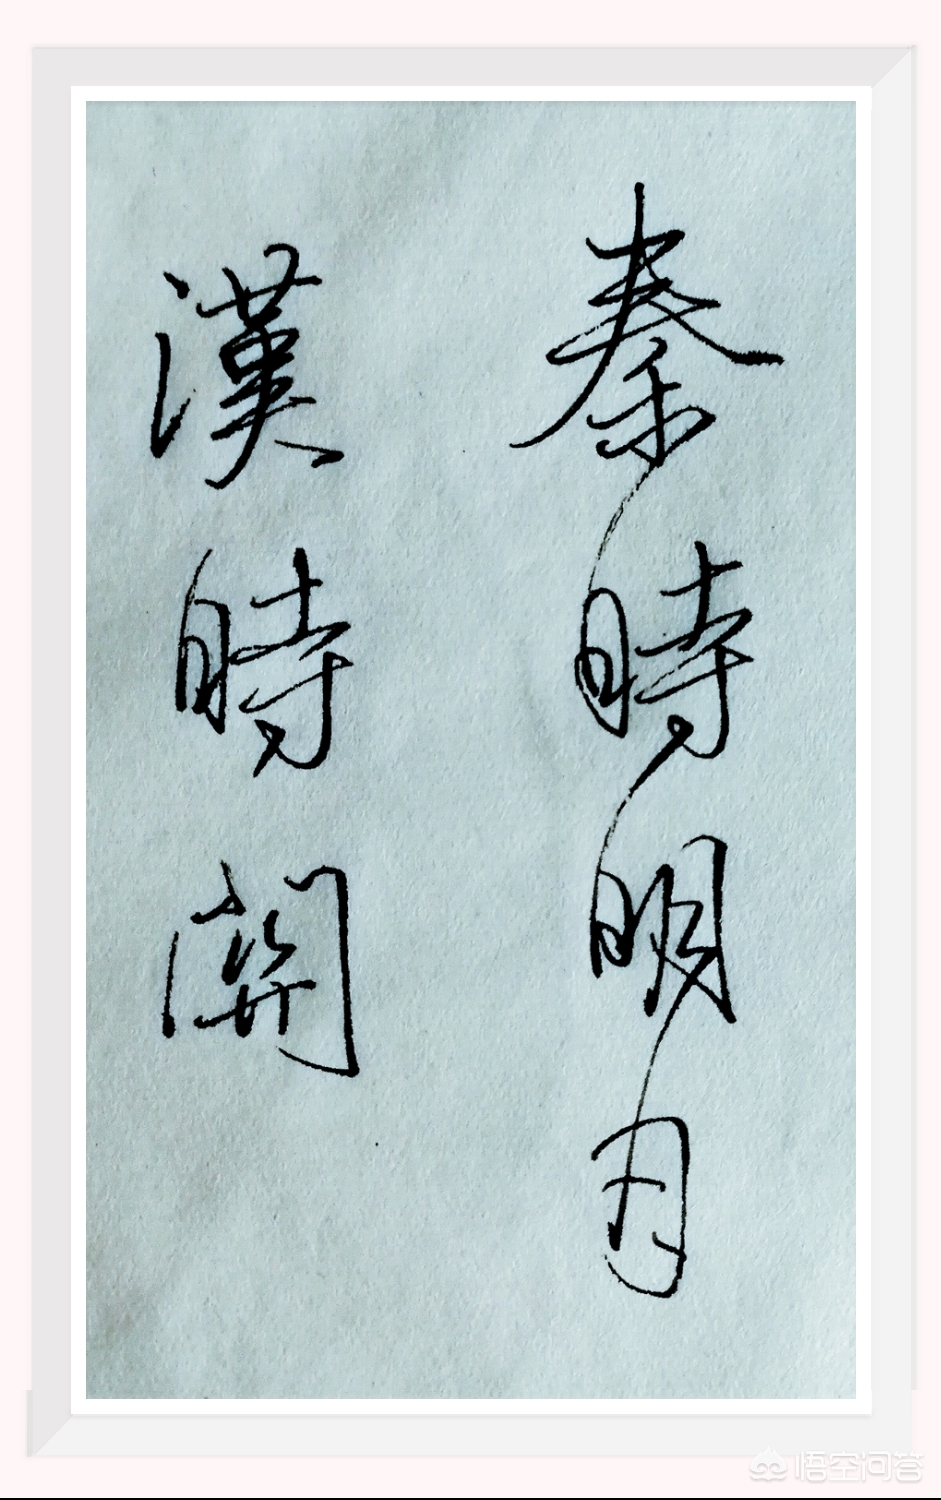 秦時明月
漢時關
悟空问答